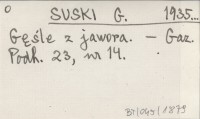 0
SUSKI G. 1935...
Gęśle z jawora. - Gaz.
Podh. 23, nr 14.
BT/045/1879